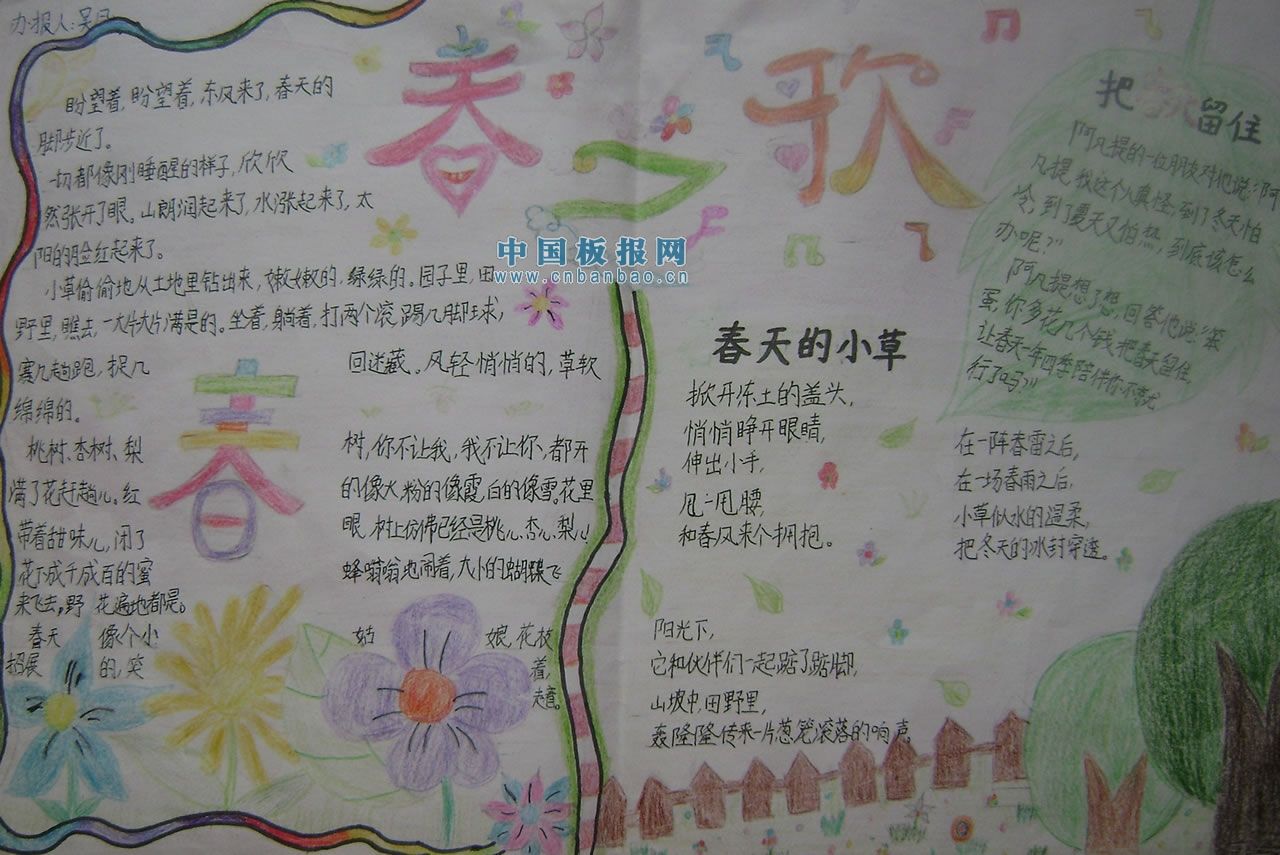 办报人:吴
春之歌
盼望着,盼望着,东风来了,春天的
脚步近了。
一切都像刚睡醒的样子,欣欣
然张开了眼。山朗润起来了,水涨起来了,太
阳的脸红起来了。
小草偷偷地从土地里钻出来,嫩嫩的.绿绿的。园子里,田
野里,瞧去,一大片大片满是的。坐着,躺着,打两个滚,踢几脚球,
赛几趟跑,捉几 回迷藏。风轻悄悄的,草软
绵绵的。
桃树、杏树、梨 树,你不让我,我不让你,都开
满了花赶趟儿。红 的像火,粉的像霞,白的像雪。花里
带着甜味儿,闭了 眼,树上仿佛已经是桃儿、杏儿、梨儿
花下成千成百的蜜 蜂嗡嗡地闹着,大小的蝴蝶飞
来飞去,野 花遍地都是。
春天 像个小 姑 娘,花枝
招展 的,笑 着,
走着。
春
中国板报网
www.cnbanbao.cn
春天的小草
掀开冻土的盖头,
悄悄睁开眼睛,
伸出小手,
甩一甩腰,
和春风来个拥抱。
在一阵春雷之后,
在一场春雨之后,
小草似水的温柔,
把冬天的冰封穿透。
阳光下,
它和伙伴们一起踮了踮脚,
山坡中,田野里,
轰隆隆传来一片葱茏滚落的响声
把春天留住
阿凡提的一位朋友对他说:“阿
凡提,我这个人真怪,到了冬天怕
冷,到了夏天又怕热,到底该怎么
办呢?”
阿凡提想了想,回答他说:“笨
蛋,你多花几个钱,把春天留住,
让春天一年四季陪伴你不就
行了吗?”